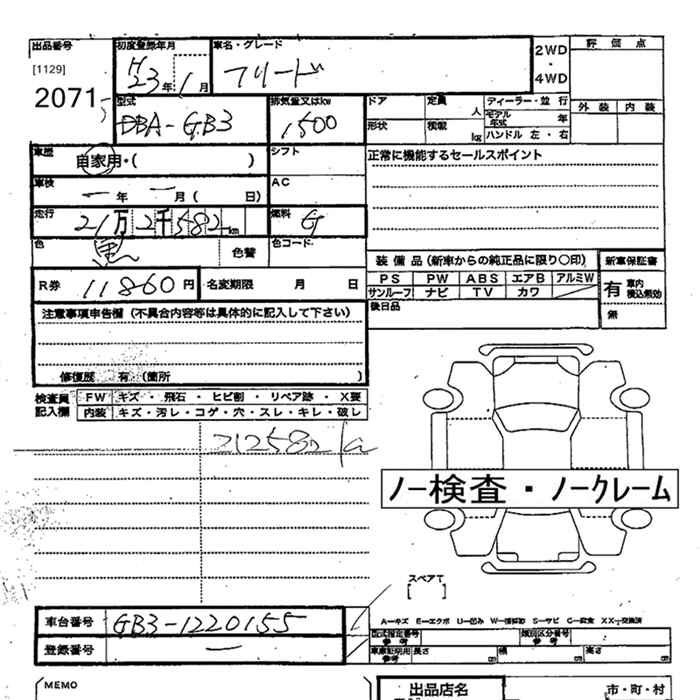 出品番号
[1129]
2071
初度登録年月
H23年1月
車名・グレード
フリード
2WD
・
4WD
評価点
外装 内装
型式
DBA-GB3
排気量又はkw
1500
ドア
定員 人
形状
積載 kg
ディーラー・並行
モデル年式 年
ハンドル 左・右
車歴
自家用・( )
シフト
正常に機能するセールスポイント
車検
ー年ー月( 日)
AC
走行
21万2千582km
燃料
G
色
黒
色替
色コード
装備品(新車からの純正品に限り○印)
新車保証書
PS PW ABS エアB アルミW
サンルーフ ナビ TV カワ
有 車内積込無効
無
R券
11860円
名変期限 月 日
後日品
注意事項申告欄(不具合内容等は具体的に記入して下さい)
修復歴 有(箇所 )
検査員記入欄
FW キズ・飛石・ヒビ割・リペア跡・X要
内装 キズ・汚レ・コゲ・穴・スレ・キレ・破レ
212582
ノー検査・ノークレーム
スペアT
[ ]
車台番号
GB3-1220155
登録番号
ー
A=キズ E=エクボ U=凹み S=サビ C=腐食
型式指定番号 参考
類別区分番号 参考
車庫証明用 参考
長さ cm 幅 cm 高さ cm
MEMO
出品店名
市・町・村